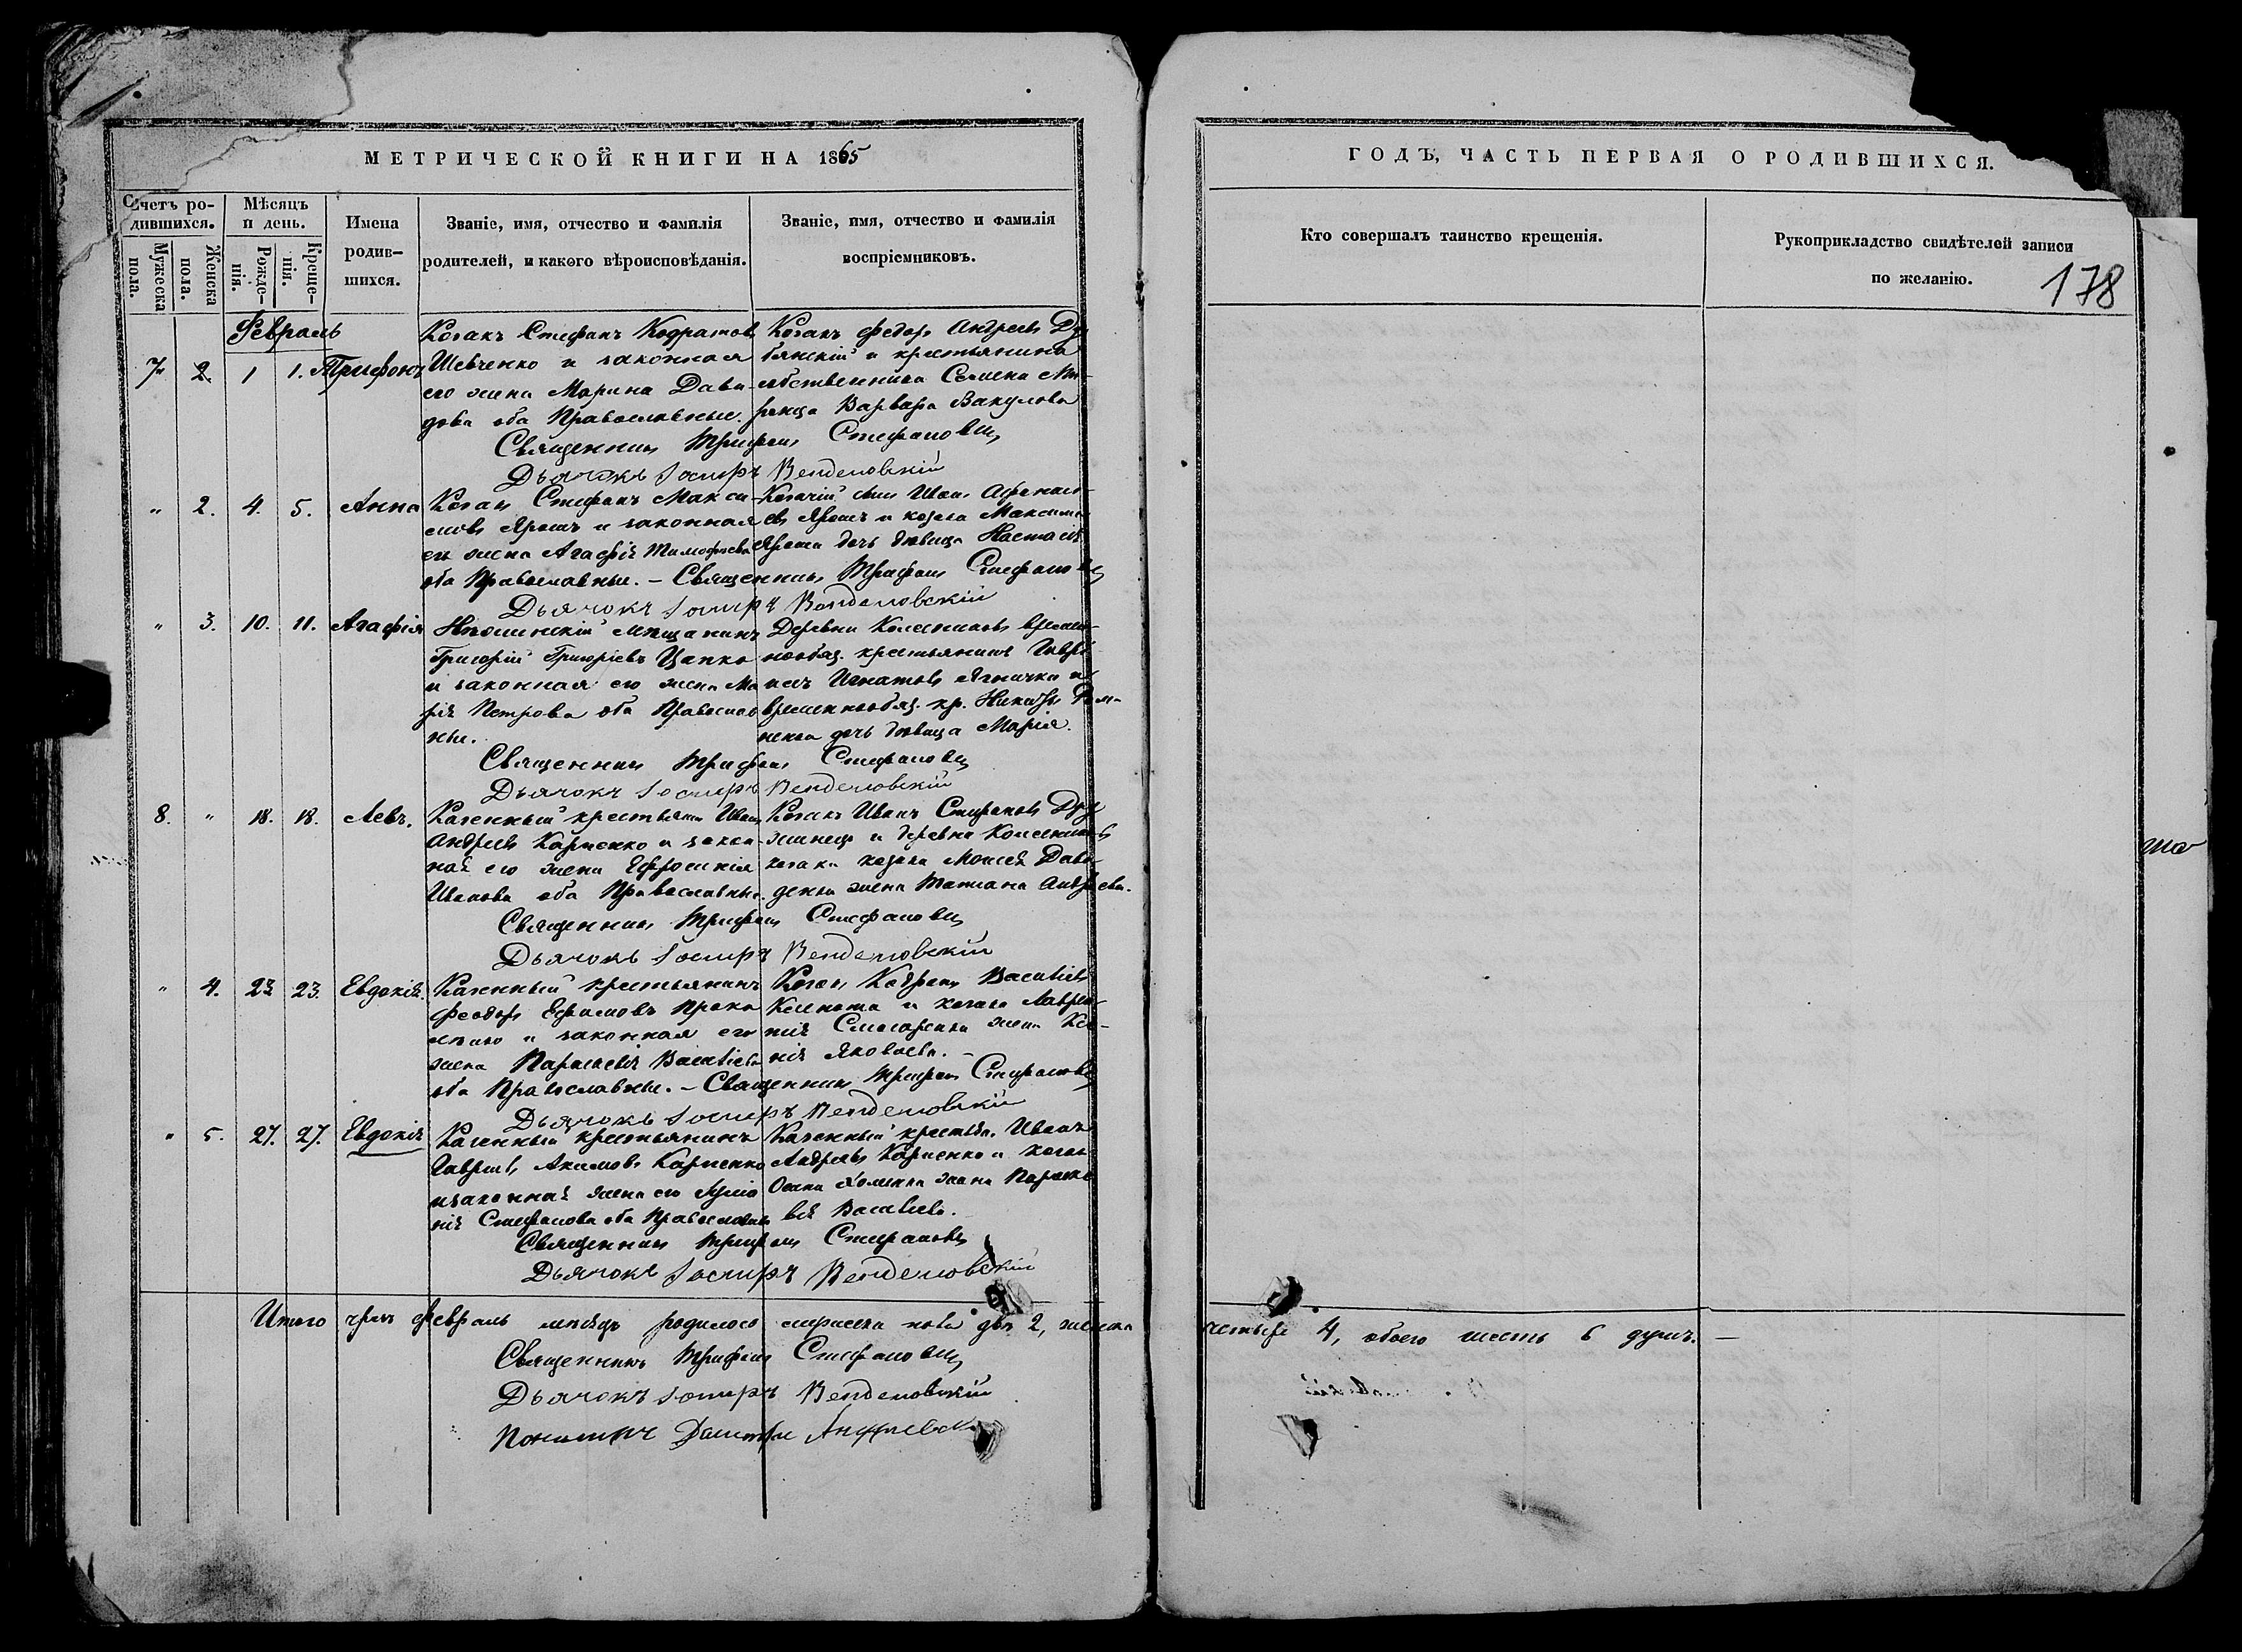 МЕТРИЧЕСКОЙ КНИГИ НА 1865
ГОДЪ, ЧАСТЬ ПЕРВАЯ О РОДИВШИХСЯ.
Счетъ ро-
дившихся.
Мужеска
пола.
Женска
пола.
Мѣсяцъ
и день.
Рожде-
нія.
Креще-
нія.
Имена
родив-
шихся.
Званіе, имя, отчество и фамилія
родителей, и какого вѣроисповѣданія.
Званіе, имя, отчество и фамилія
воспріемниковъ.
Кто совершалъ таинство крещенія.
Рукоприкладство свидѣтелей записи
по желанію.
178
Февраль
7 2. 1 1. Трифонъ
Козакъ Стефанъ Кодратовъ
Шевченко и законная
его жена Марина Дави-
дова оба Православные.
Козакъ Федоръ Андреевъ
и крестьянина
собственника Семена
Варвара Вакулова
Священникъ Трифонъ Стефановъ
Дьячокъ Іосифъ
" 2. 4. 5. Анна
Козакъ Стефанъ Макси-
мовъ Ярошъ и законная
его жена Агафія Тимофѣева
оба Православные. –
Козачій сынъ Иванъ Афанась-
евъ Ярошъ и козака Максима
Яроша дочь дѣвица Настасія
Священникъ Трифонъ Стефановъ
Дьячокъ Іосифъ
" 3. 10. 11. Агафія
Нѣжинскій мѣщанинъ
Григорій Григоріевъ Цапко
и законная его жена Ма
рія Петрова оба Православ
ные.
Деревни Колесниковъ времен-
нообяз. крестьянинъ Гаврі
илъ Игнатовъ Ягничка и
временнообяз. кр. Никиты
дочь дѣвица Марія.
Священникъ Трифонъ Стефановъ
Дьячокъ Іосифъ
8. " 18. 18. Левъ.
Казенный крестьянинъ Иванъ
Андреевъ Карпенко и закон-
ная его жена Ефросинія
Иванова оба Православные.
Козакъ Иванъ Стефановъ
и деревни Колесниковъ
козака Моисея Дави-
денка жена Татіана Андреева.
Священникъ Трифонъ Стефановъ
Дьячокъ Іосифъ
" 4. 23. 23. Евдокія.
Казенный крестьянинъ
Феодоръ Ефимовъ
и законная его
жена Параскевія Василіева
оба Православные. –
Козакъ Кодратъ Василіевъ
и козака Лаврен-
тія жена Ксе-
нія Яковлева. –
Священникъ Трифонъ Стефановъ
Дьячокъ Іосифъ
" 5. 27. 27. Евдокія
Казенный крестьянинъ
Гавріилъ Акимовъ Карпенко
и законная жена его
Стефанова оба Православные
Казенный крестьян. Иванъ
Андреевъ Карпенко и козака
жена Параске
вія Василіева.
Священникъ Трифонъ Стефановъ
Дьячокъ Іосифъ
Итого чрезъ Февраль мѣсяцъ родилось мужеска пола два 2, женска
четыре 4, обоего шесть 6 душъ. –
Священникъ Трифонъ Стефановъ
Дьячокъ Іосифъ
Пономарь Димитрій